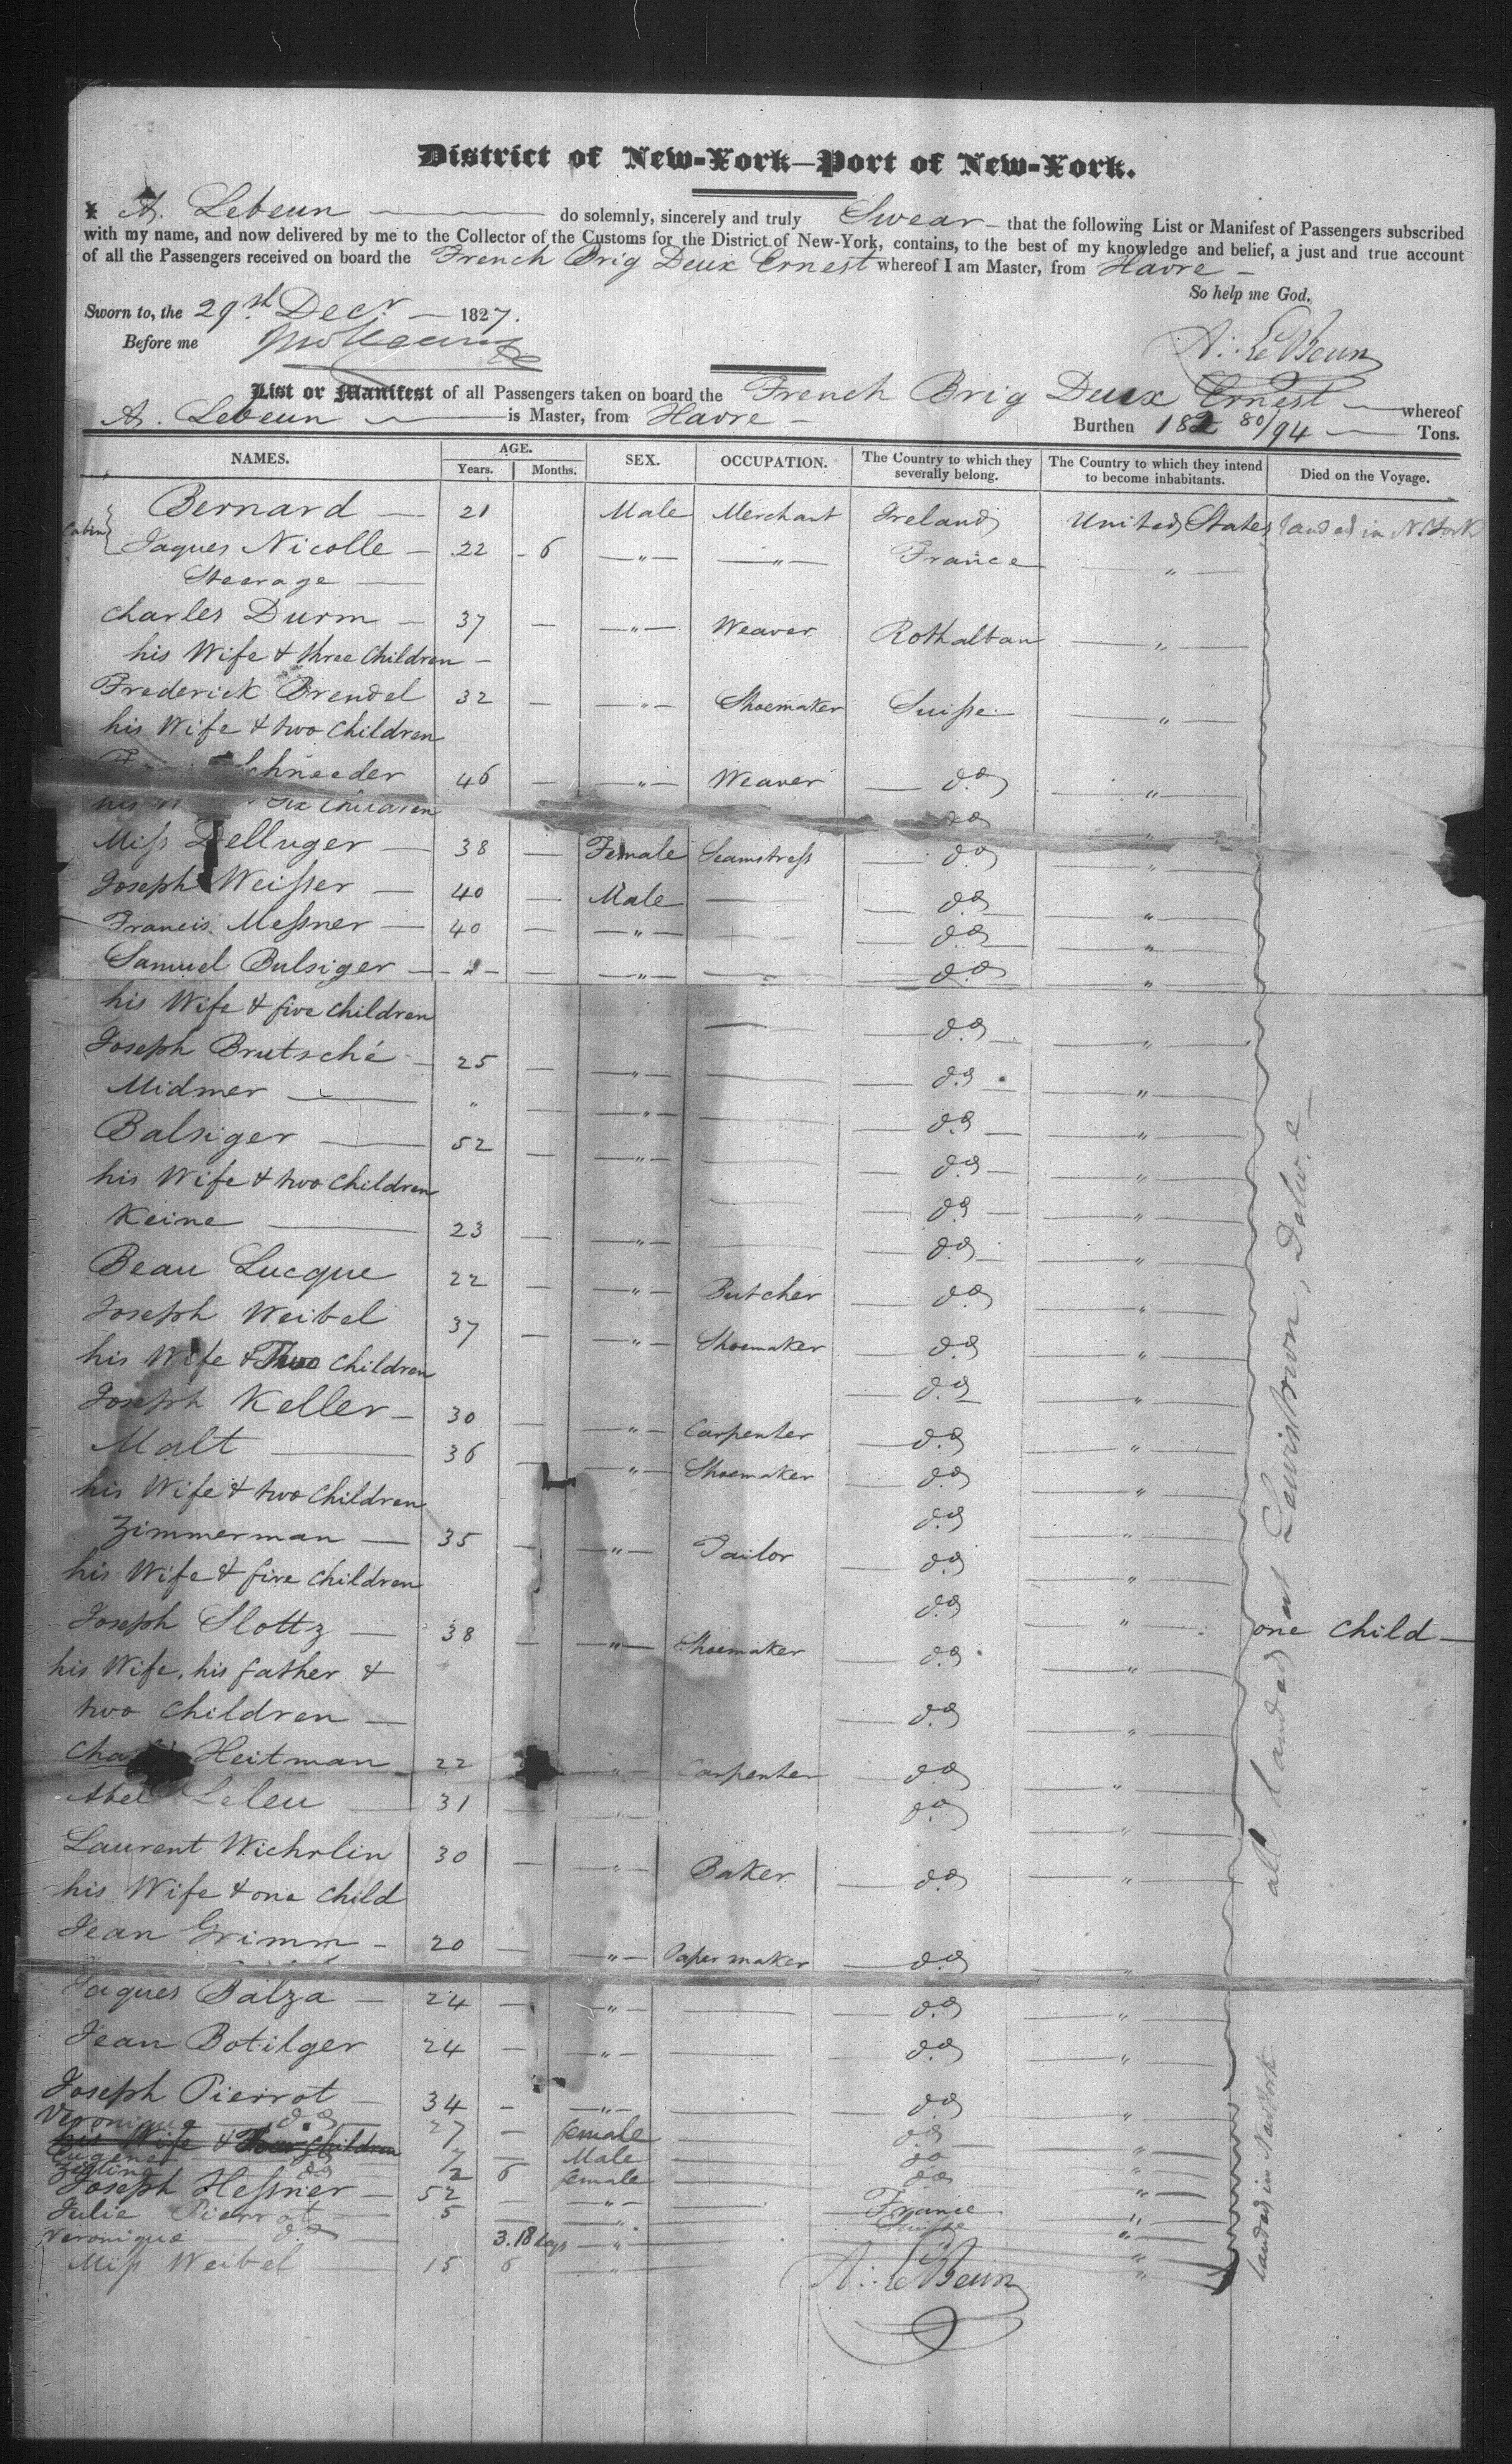 District of New-York—Port of New-York.
I A. Lebeun — do solemnly, sincerely and truly Swear — that the following List or Manifest of Passengers subscribed
with my name, and now delivered by me to the Collector of the Customs for the District of New-York, contains, to the best of my knowledge and belief, a just and true account
of all the Passengers received on board the French Brig Deux Ernest whereof I am Master, from Havre —
So help me God.
Sworn to, the 29th Decr. — 1827.
Before me
A: LeBeun
List or Manifest of all Passengers taken on board the French Brig Deux Ernest — whereof
A. Lebeun — is Master, from Havre — Burthen 182 80/94 — Tons.
NAMES. AGE. Years. Months. SEX. OCCUPATION. The Country to which they severally belong. The Country to which they intend to become inhabitants. Died on the Voyage.
Cabin
Bernard — 21 Male Merchant Ireland United States landed in N. York
Jaques Nicolle — 22 - 6 —"— —"— France —"—
Steerage —
Charles Durm — 37 — —"— Weaver Rothalban —"—
his Wife & three Children —
Frederick Brendel 32 — —"— Shoemaker Suisse —"—
his Wife & two Children
Schneeder 46 — —"— Weaver — do —"—
his Six Children do —"—
Miss Delluger — 38 — Female Seamstress — do —"—
Joseph Weisser — 40 — Male — — do — —"—
Francis Messner — 40 — —"— — — do — —"—
Samuel Bulsiger — — —"— — — do —"—
his Wife & five Children — — do — —"—
Joseph Brutsché — 25 — —"— — — do —"—
Midmer — " — —"— — — do — —"—
Balsiger — 52 — —"— — — do — —"—
his Wife & two Children — — do — —"—
Keine — 23 — —"— — — do — —"—
Beau Lucque 22 — —"— Butcher — do —"—
Joseph Weibel 37 — —"— Shoemaker — do —"—
his Wife & Two Children — do —"—
Joseph Keller — 30 — —"— Carpenter — do —"—
Malt — 36 — —"— Shoemaker — do —"—
his Wife & two Children do —"—
Zimmerman — 35 — —"— Tailor — do —"—
his Wife & five Children do —"—
Joseph Slottz — 38 — —"— Shoemaker — do —"— one Child —
his Wife, his father &
two Children — — do —"—
Heitman 22 —"— Carpenter — do —"—
Abel Leleu — 31 — —"— do —"—
Laurent Wichrlin 30 — —"— Baker — do —"—
his Wife & one Child
Jean Grimm — 20 — —"— Paper maker — do —"—
Jaques Balza — 24 — —"— — — do —"—
Jean Botilger 24 — —"— — — do —"—
Joseph Pierrot — 34 — —"— — — do —"—
Veronique — do — 27 — female — do — —"—
his Wife & Children
Eugene 7 — Male — do —"—
do 2 6 female — do —"—
Joseph Hessner — 52 —"— — France —"—
Julie Pierrot — 5 — —"— — Suisse —"—
Veronique do — 3.18 days —"— — —"—
Miss Weibel — 15 6 —"— —"—
all landed at Lewistown, Delw.e —
landed in New York
A: LeBeun